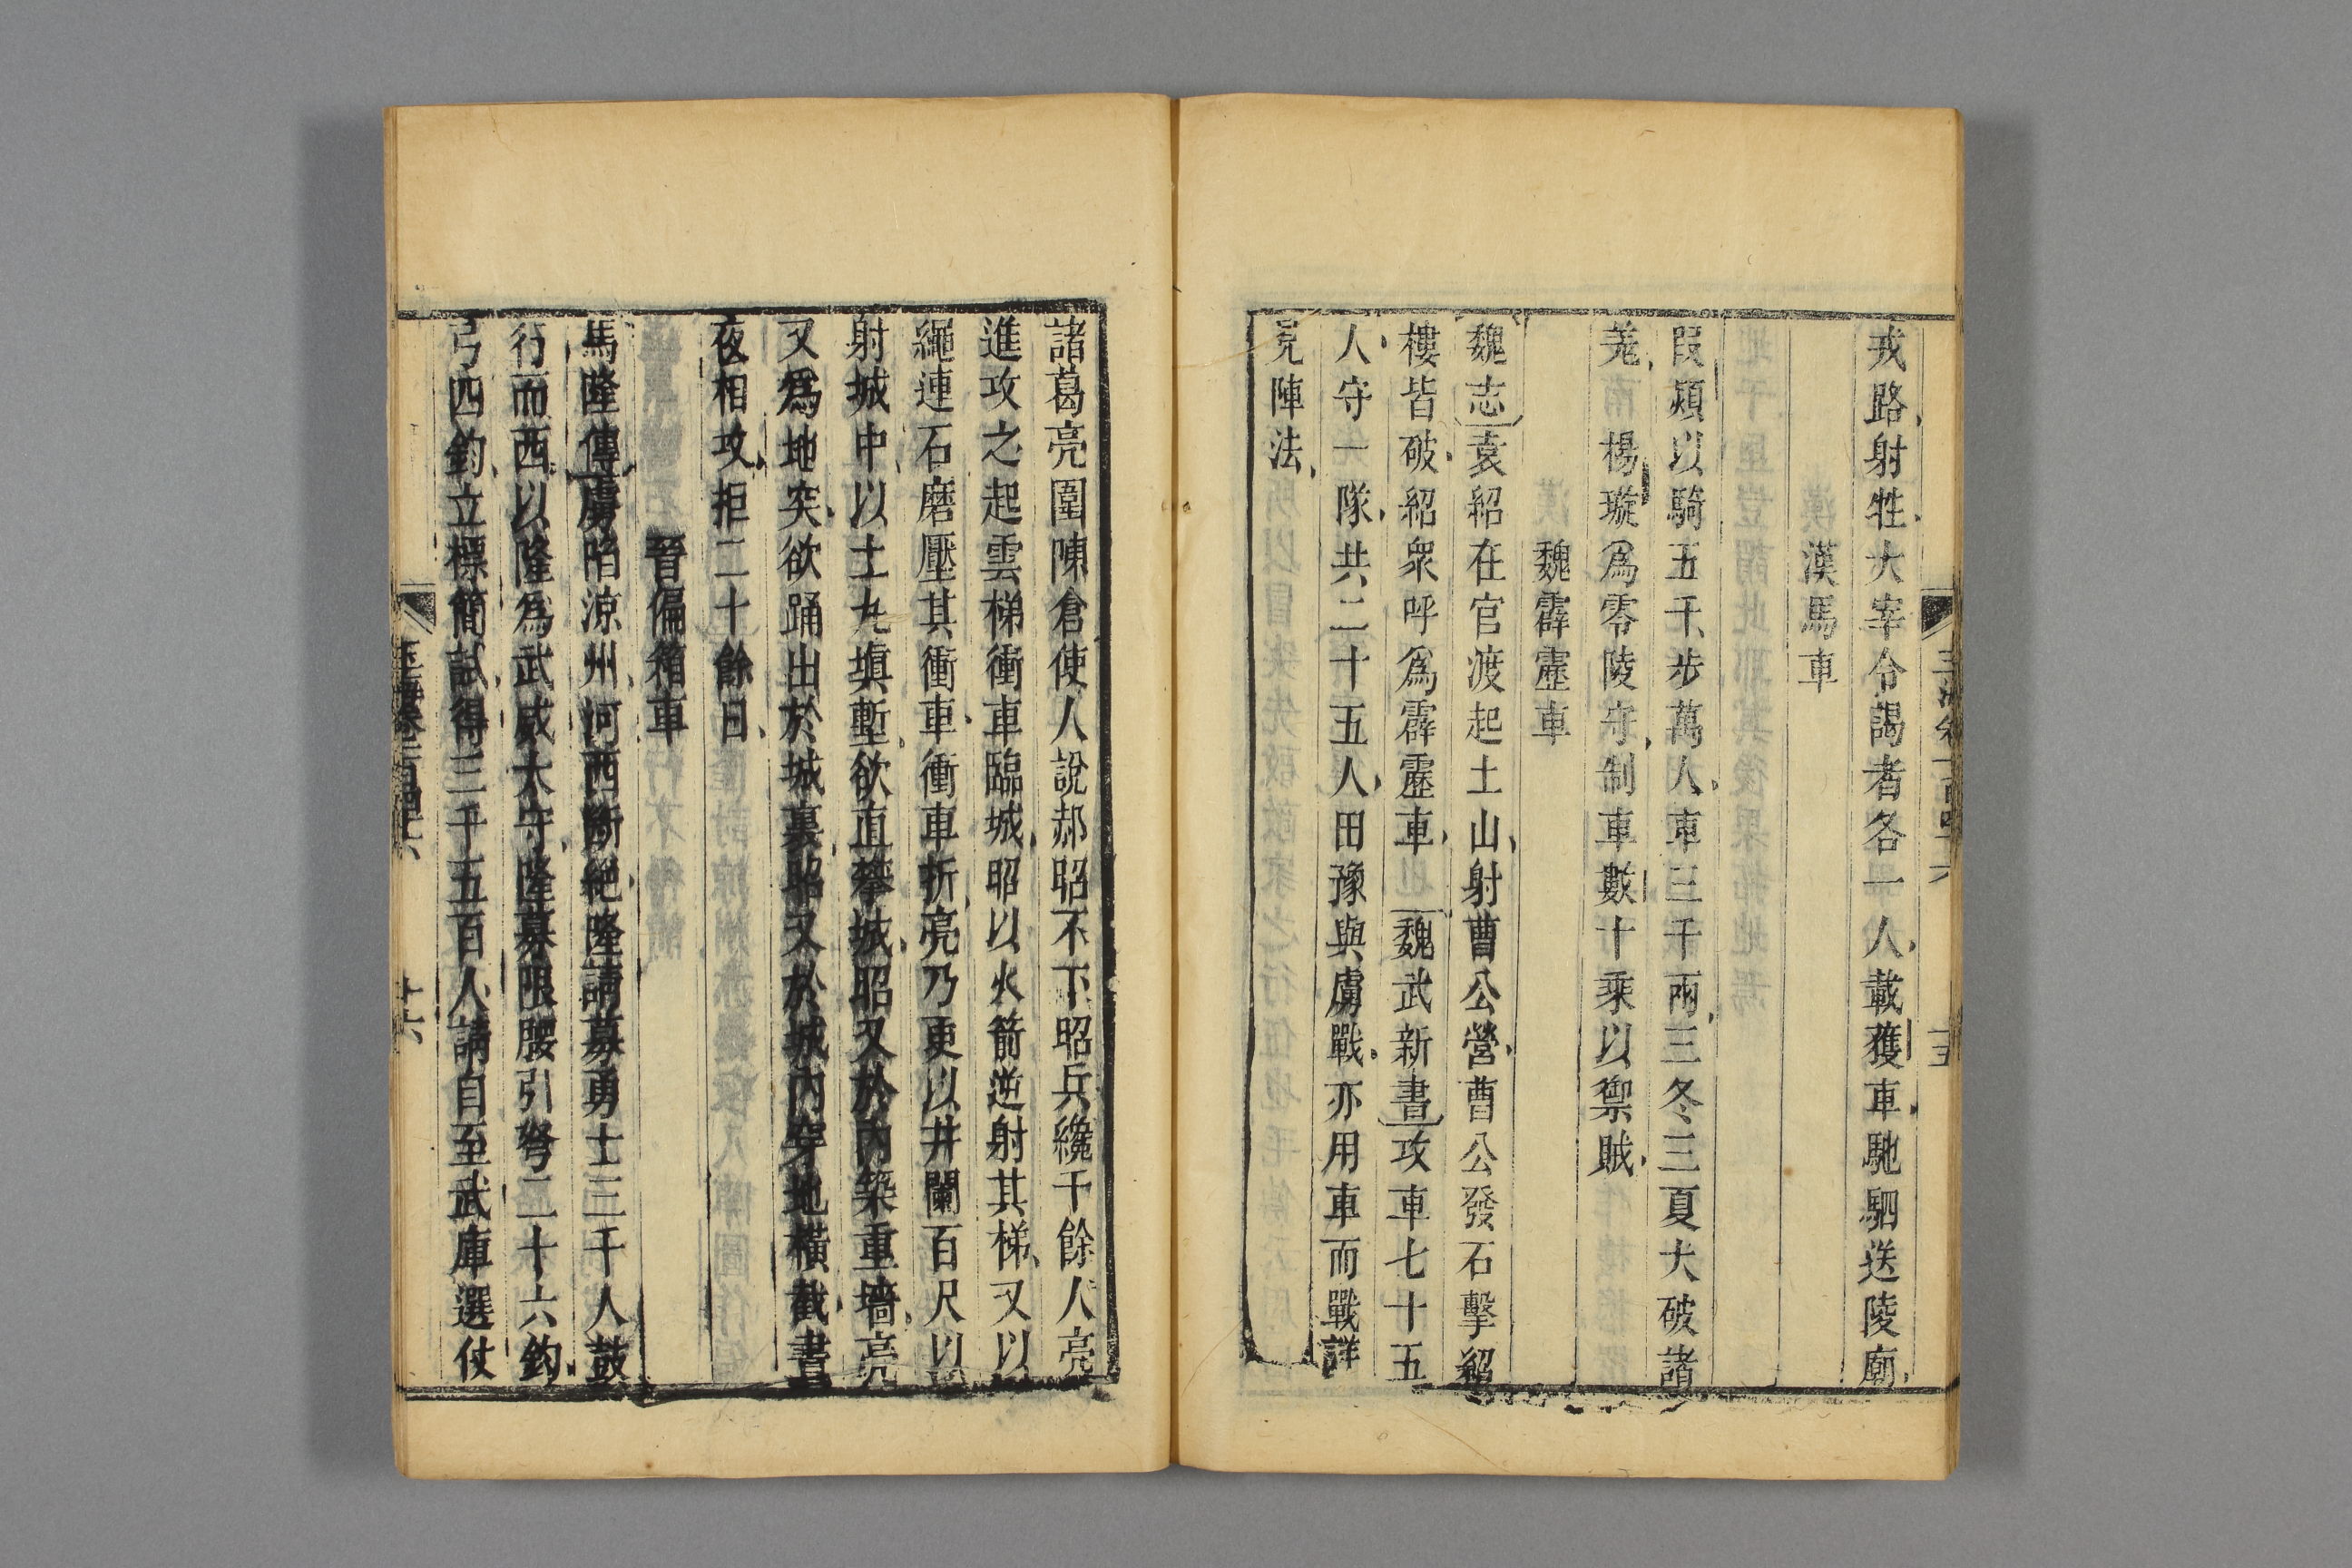 戎路射牲大宰令謁者各一人載獲車馳駟送陵廟
漢馬車
段熲以騎五千步萬人車三千兩三冬三夏大破諸
羗 楊璇爲零陵守制車數十乘以禦賊
魏霹靂車
魏志袁紹在官渡起土山射曹公營曹公發石擊紹
樓皆破紹衆呼爲霹靂車 魏武新書攻車七十五
人守一隊共二十五人田豫與虜戰亦用車而戰詳
見陣法
玉海卷一百四十六
十五
諸葛亮圍陳倉使人說郝昭不下昭兵纔千餘人亮
進攻之起雲梯衝車臨城昭以火箭逆射其梯又以
繩連石磨壓其衝車衝車折亮乃更以井闌百尺以
射城中以土丸塡塹欲直攀城昭又於內築重墻亮
又爲地突欲踊出於城裏昭又於城內穿地橫截晝
夜相攻拒二十餘日
晉偏箱車
馬隆傳虜陷涼州河西斷絶隆請募勇士三千人鼓
行而西以隆爲武威太守隆募限腰引弩二十六鈞
弓四鈞立標簡試得三千五百人請自至武庫選仗
玉海卷一百四十六
十六